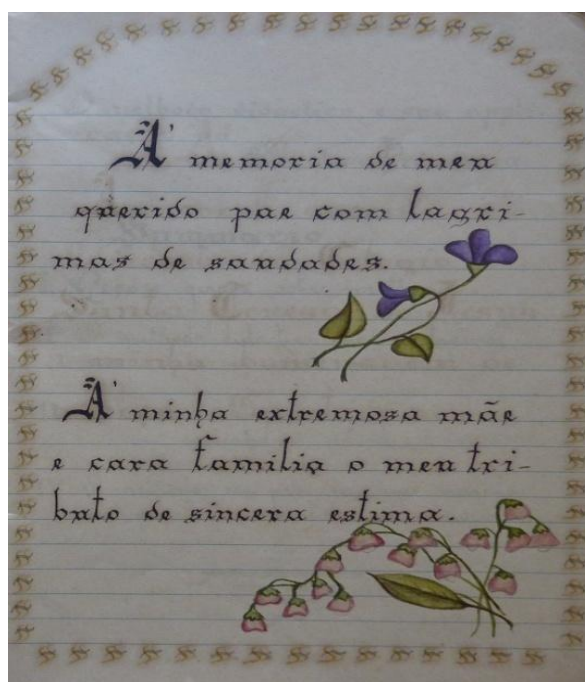 Á memoria de meu
querido pae com lagri-
mas de saudades.
Á minha extremosa mãe
e cara familia o meu tri-
buto de sincera estima.